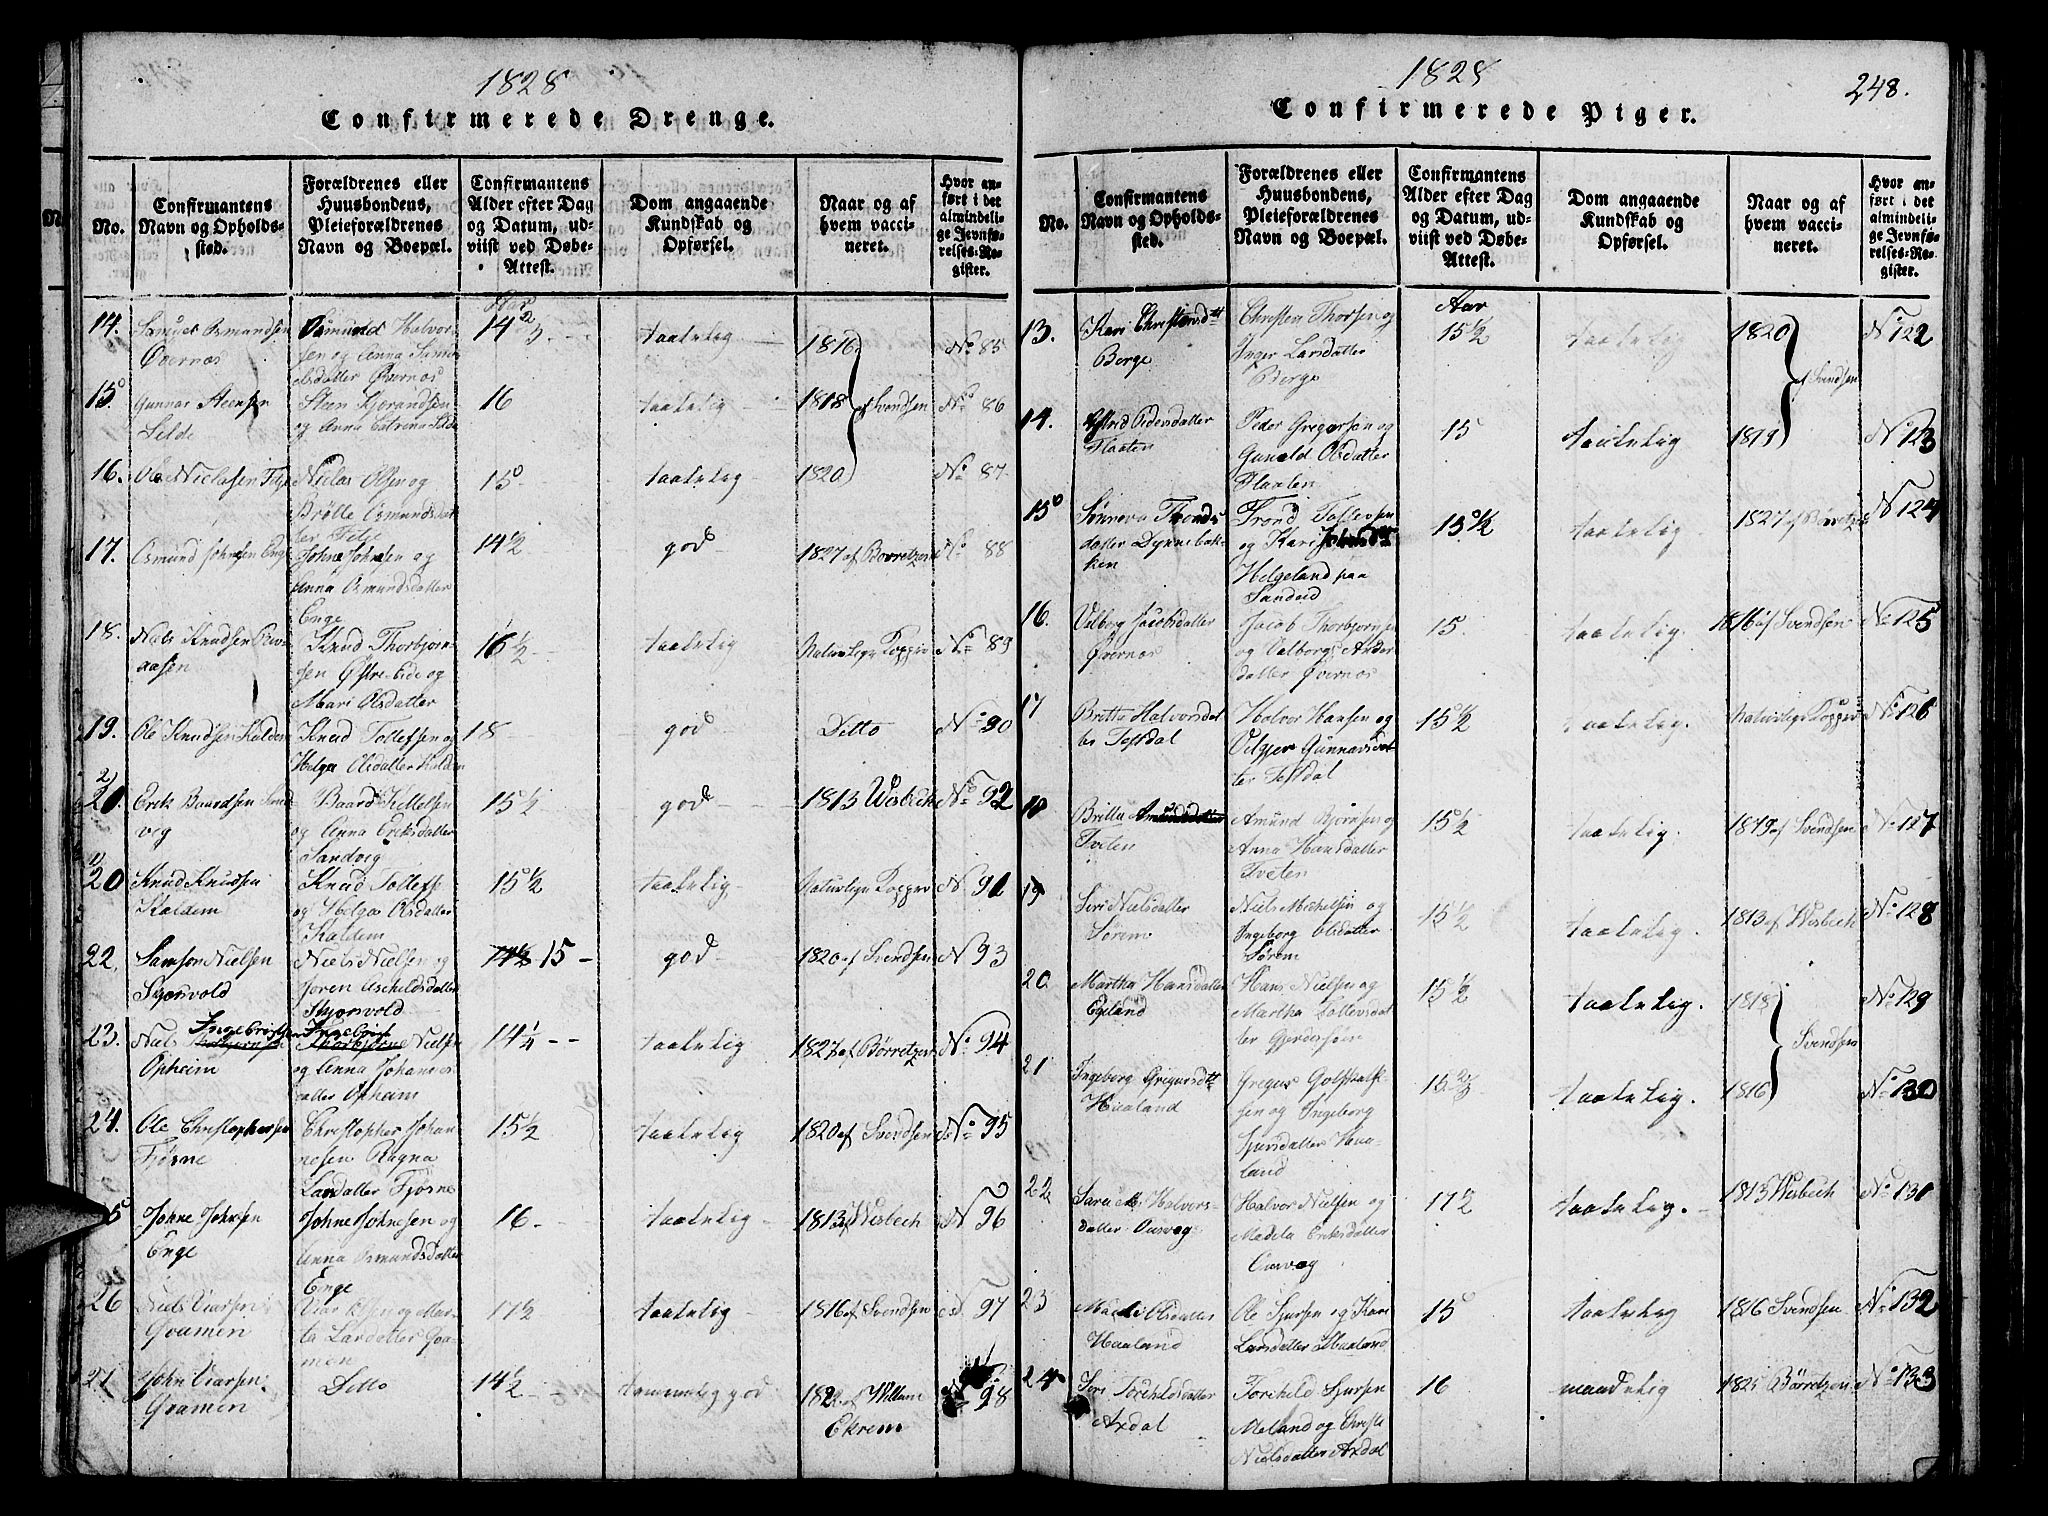 1828
Confirmerede Drenge.
No.
Confirmantens Navn og Opholds-sted.
Forældrenes eller Huusbondens, Pleieforældrenes Navn og Boepæl.
Confirmantens Alder efter Dag og Datum, ud-viist ved Døbe-Attest.
Dom angaaende Kundskab og Opførsel.
Naar og af hvem vacci-neret.
Hvor an-ført i det almindeli-ge Jevnfø-relses-Re-gister.
Aar
14. Osmundsen Øvernæs Osmund Halvor-sen og Anna Øvernæs 14 taalelig 1816 No 85
15. Gunnar Steensen Silde Steen og Anna Catrina Silde 16 taalelig 1818 af Svendsen No 86
16. Ole Niclasen Niclas Olsen og Osmundsdat-ter 15 taalelig 1820 No 87
17. Osmund Johnsen Enge Johne Johnsen og Anna Osmundsdatter Enge 14 1/2 god 1827 af Børretzen No 88
18. Niels Knudsen Knud Thorbjørn-sen Østrebøe og Mari Olsdatter 16 1/2 taalelig Naturlige Kopper No 89
19. Ole Knudsen Kaldem Knud Tollefsen og Helga Olsdatter Kaldem 18 god Ditto No 90
2) 21. Erik Baardsen Sand-vig Baard Kittelsen og Anna Eriksdatter Sandvig 15 1/2 god 1813 Wesbech No 92
1) 20 Knud Knudsen Kaldem Knud Tollefs. og Helga Olsdatter Kaldem 15 1/2 taalelig Naturlige Kopper No 91
22. Samson Nielsen Skjorvold Niels Nielsen og Joren Aschildsdatter Skjorvold 15 god 1820 af Svendsen No 93
23. Niels Opheim Nielsen og Anna Johannes-datter Opheim 14 1/4 taalelig 1827 af Børretzen No 94
24. Ole Christophersen Fjøsne Christopher Johan-nesen Ragna Larsdatter Fjøsne 15 1/2 taalelig 1820 af Svendsen No 95
25 Johne Johnsen Enge Johne Johnesen og Anna Osmundsdatter Enge 16 taalelig 1813 af Wesbech No 96
26 Niels Viarsen Qvamen Viar og Mar-ta Larsdatter Qva-men 17 1/2 taalelig 1816 af Svendsen No 97
27 John Viarsen Qvamen Ditto 14 1/2 temmelig god af Willem Ekrem No 98
1828
248.
Confirmerede Piger.
No.
Confirmantens Navn og Opholds-sted.
Forældrenes eller Huusbondens, Pleieforældrenes Navn og Boepæl.
Confirmantens Alder efter Dag og Datum, ud-viist ved Døbe-Attest.
Dom angaaende Kundskab og Opførsel.
Naar og af hvem vacci-neret.
Hvor an-ført i det almindeli-ge Jevnfø-relses-Re-gister.
Aar
13. Kari Christensdtt Berge Christen Thorsen og Inger Larsdatter Berge 15 1/2 taalelig 1820 af Svendsen No 122
14. Astrid Pedersdatter Flaaten Peder Gregersen og Gunild Olsdatter Flaaten 15 taalelig 1819 No 123
15 Sønneva Tronds-datter Dynnebak-ken Trond Tollevsen og Kari Helgeland paa Sandeid 15 1/2 taalelig 1827 af Børretzen No 124
16. Valborg Jacobsdatter Øvernæs Jacob Thorbjørnsen og Valborg Anders-datter Øvernæs 15. taalelig. 1816 af Svendsen No 125
17 Britte Halvorsdat-ter Tostdal Halvor Hansen og Gunnarsdat-ter Tostdal 15 1/2 taalelig. Naturlige Kopper No 126
18 Britta Amundsdatter Tveten Amund Bjørnsen og Anna Hansdatter Tveten 15 1/2 taalelig. 1819 af Svendsen No 127
19 Siri Nielsdatter Sørem Niels Michelsen og Ingeborg Olsdatter Sørem 15 1/2 taalelig. 1813 af Wesbech No 128
20 Martha Hansdatter Egeland Hans Nielsen og Martha Tollevsdat-ter 15 1/2 taalelig. 1818 Svendsen No 129
21 Ingeborg Gregersdtt Haaland Gregus og Ingeborg Sjursdatter Haa-land 15 2/3 taalelig. 1816 No 130
22 Sara M. Halvors-datter Ousvog Halvor Nielsen og Madela Eriksdatter Ousvog 17 1/2 taalelig. 1813 Wesbech No 131
23 Olsdatter Haaland Ole Sjursen og Kari Larsdatter Haaland 15 taalelig 1816 Svendsen No 132
24 Siri Torchildsdatter Axdal Torchild Sjursen Meland og Christi Nielsdatter Axdal 16 maadelig 1825 Børretzen No 133